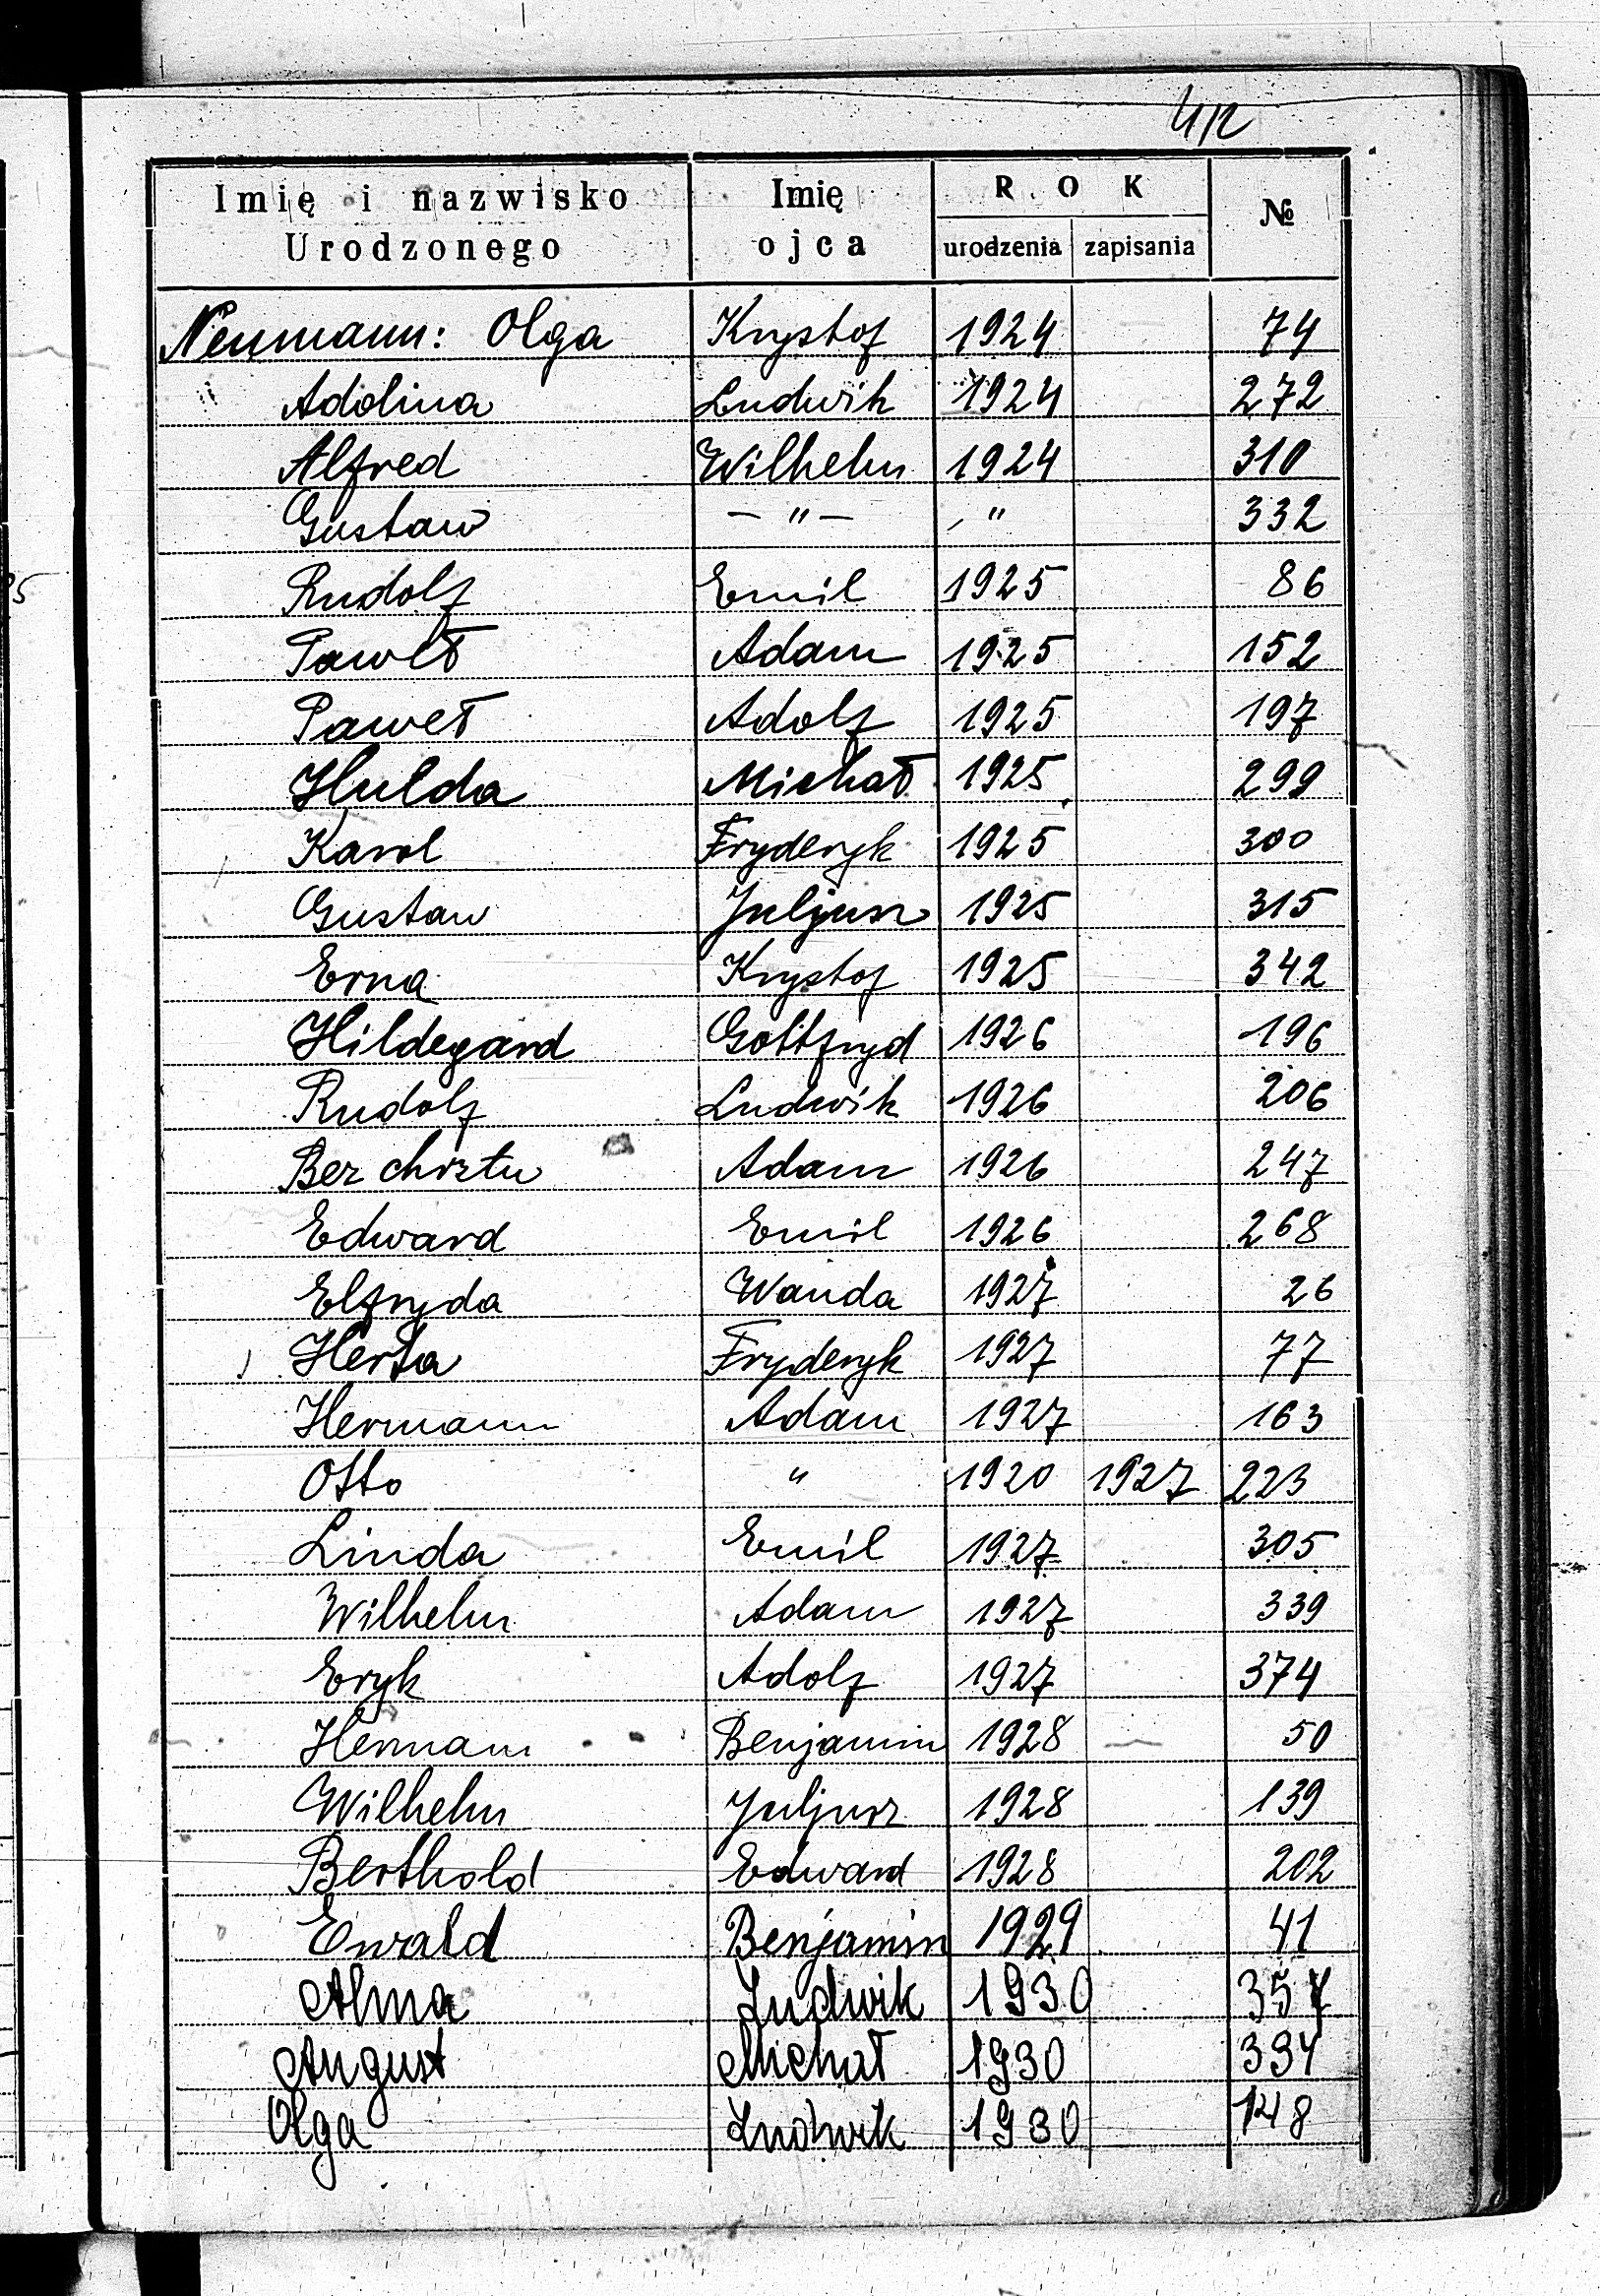 412
Imię i nazwisko Urodzonego | Imię ojca | ROK urodzenia | zapisania | №
Neumann: Olga Krystof 1924 74
Adolina Ludwik 1924 272
Alfred Wilhelm 1924 310
Gustaw — " — , " 332
Rudolf Emil 1925 86
Paweł Adam 1925 152
Paweł Adolf 1925 197
Hulda Michał 1925 299
Karol Fryderyk 1925 300
Gustaw Juljusz 1925 315
Erna Krystof 1925 342
Hildegard Gottfryd 1926 196
Rudolf Ludwik 1926 206
Bez chrztu Adam 1926 247
Edward Emil 1926 268
Elfryda Wanda 1927 26
Herta Fryderyk 1927 77
Hermann Adam 1927 163
Otto " 1920 1927 223
Linda Emil 1927 305
Wilhelm Adam 1927 339
Eryk Adolf 1927 374
Herman Benjamin 1928 — 50
Wilhelm Juljusz 1928 139
Berthold Edward 1928 202
Ewald Benjamin 1929 41
Alma Ludwik 1930
August Michał 1930 394
Olga Ludwik 1930 148